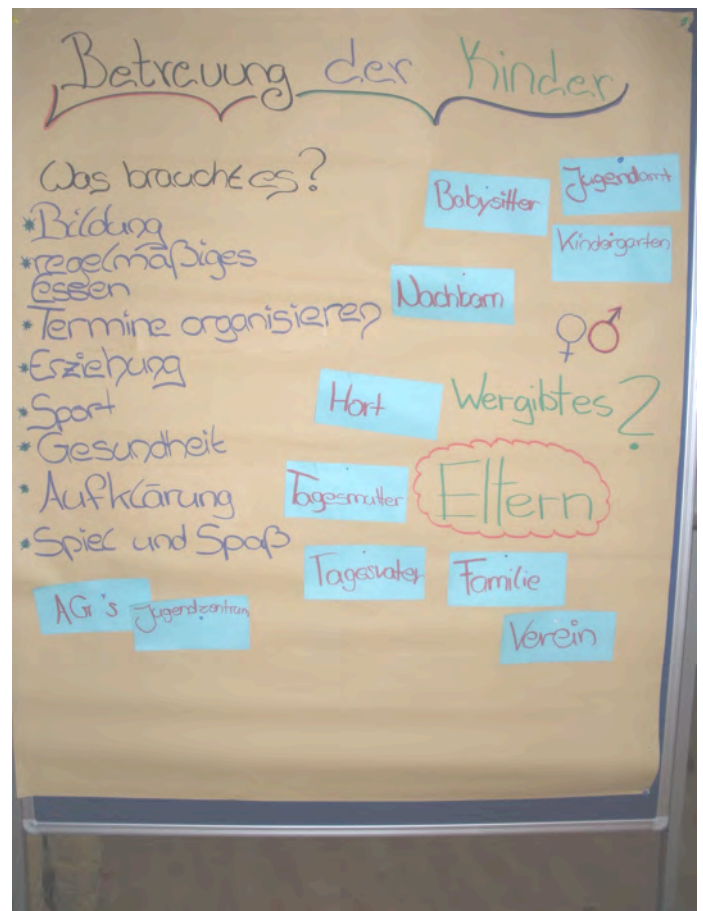 Betreuung der Kinder
Was braucht es?
* Bildung
* regelmäßiges
Essen
* Termine organisieren
* Erziehung
* Sport
* Gesundheit
* Aufklärung
* Spiel und Spaß
AG's
Jugendzentrum
Babysitter
Jugendamt
Kindergarten
Nachbarn
♀♂
Hort
Wer gibt es?
Tagesmutter
Eltern
Tagesvater
Familie
Verein